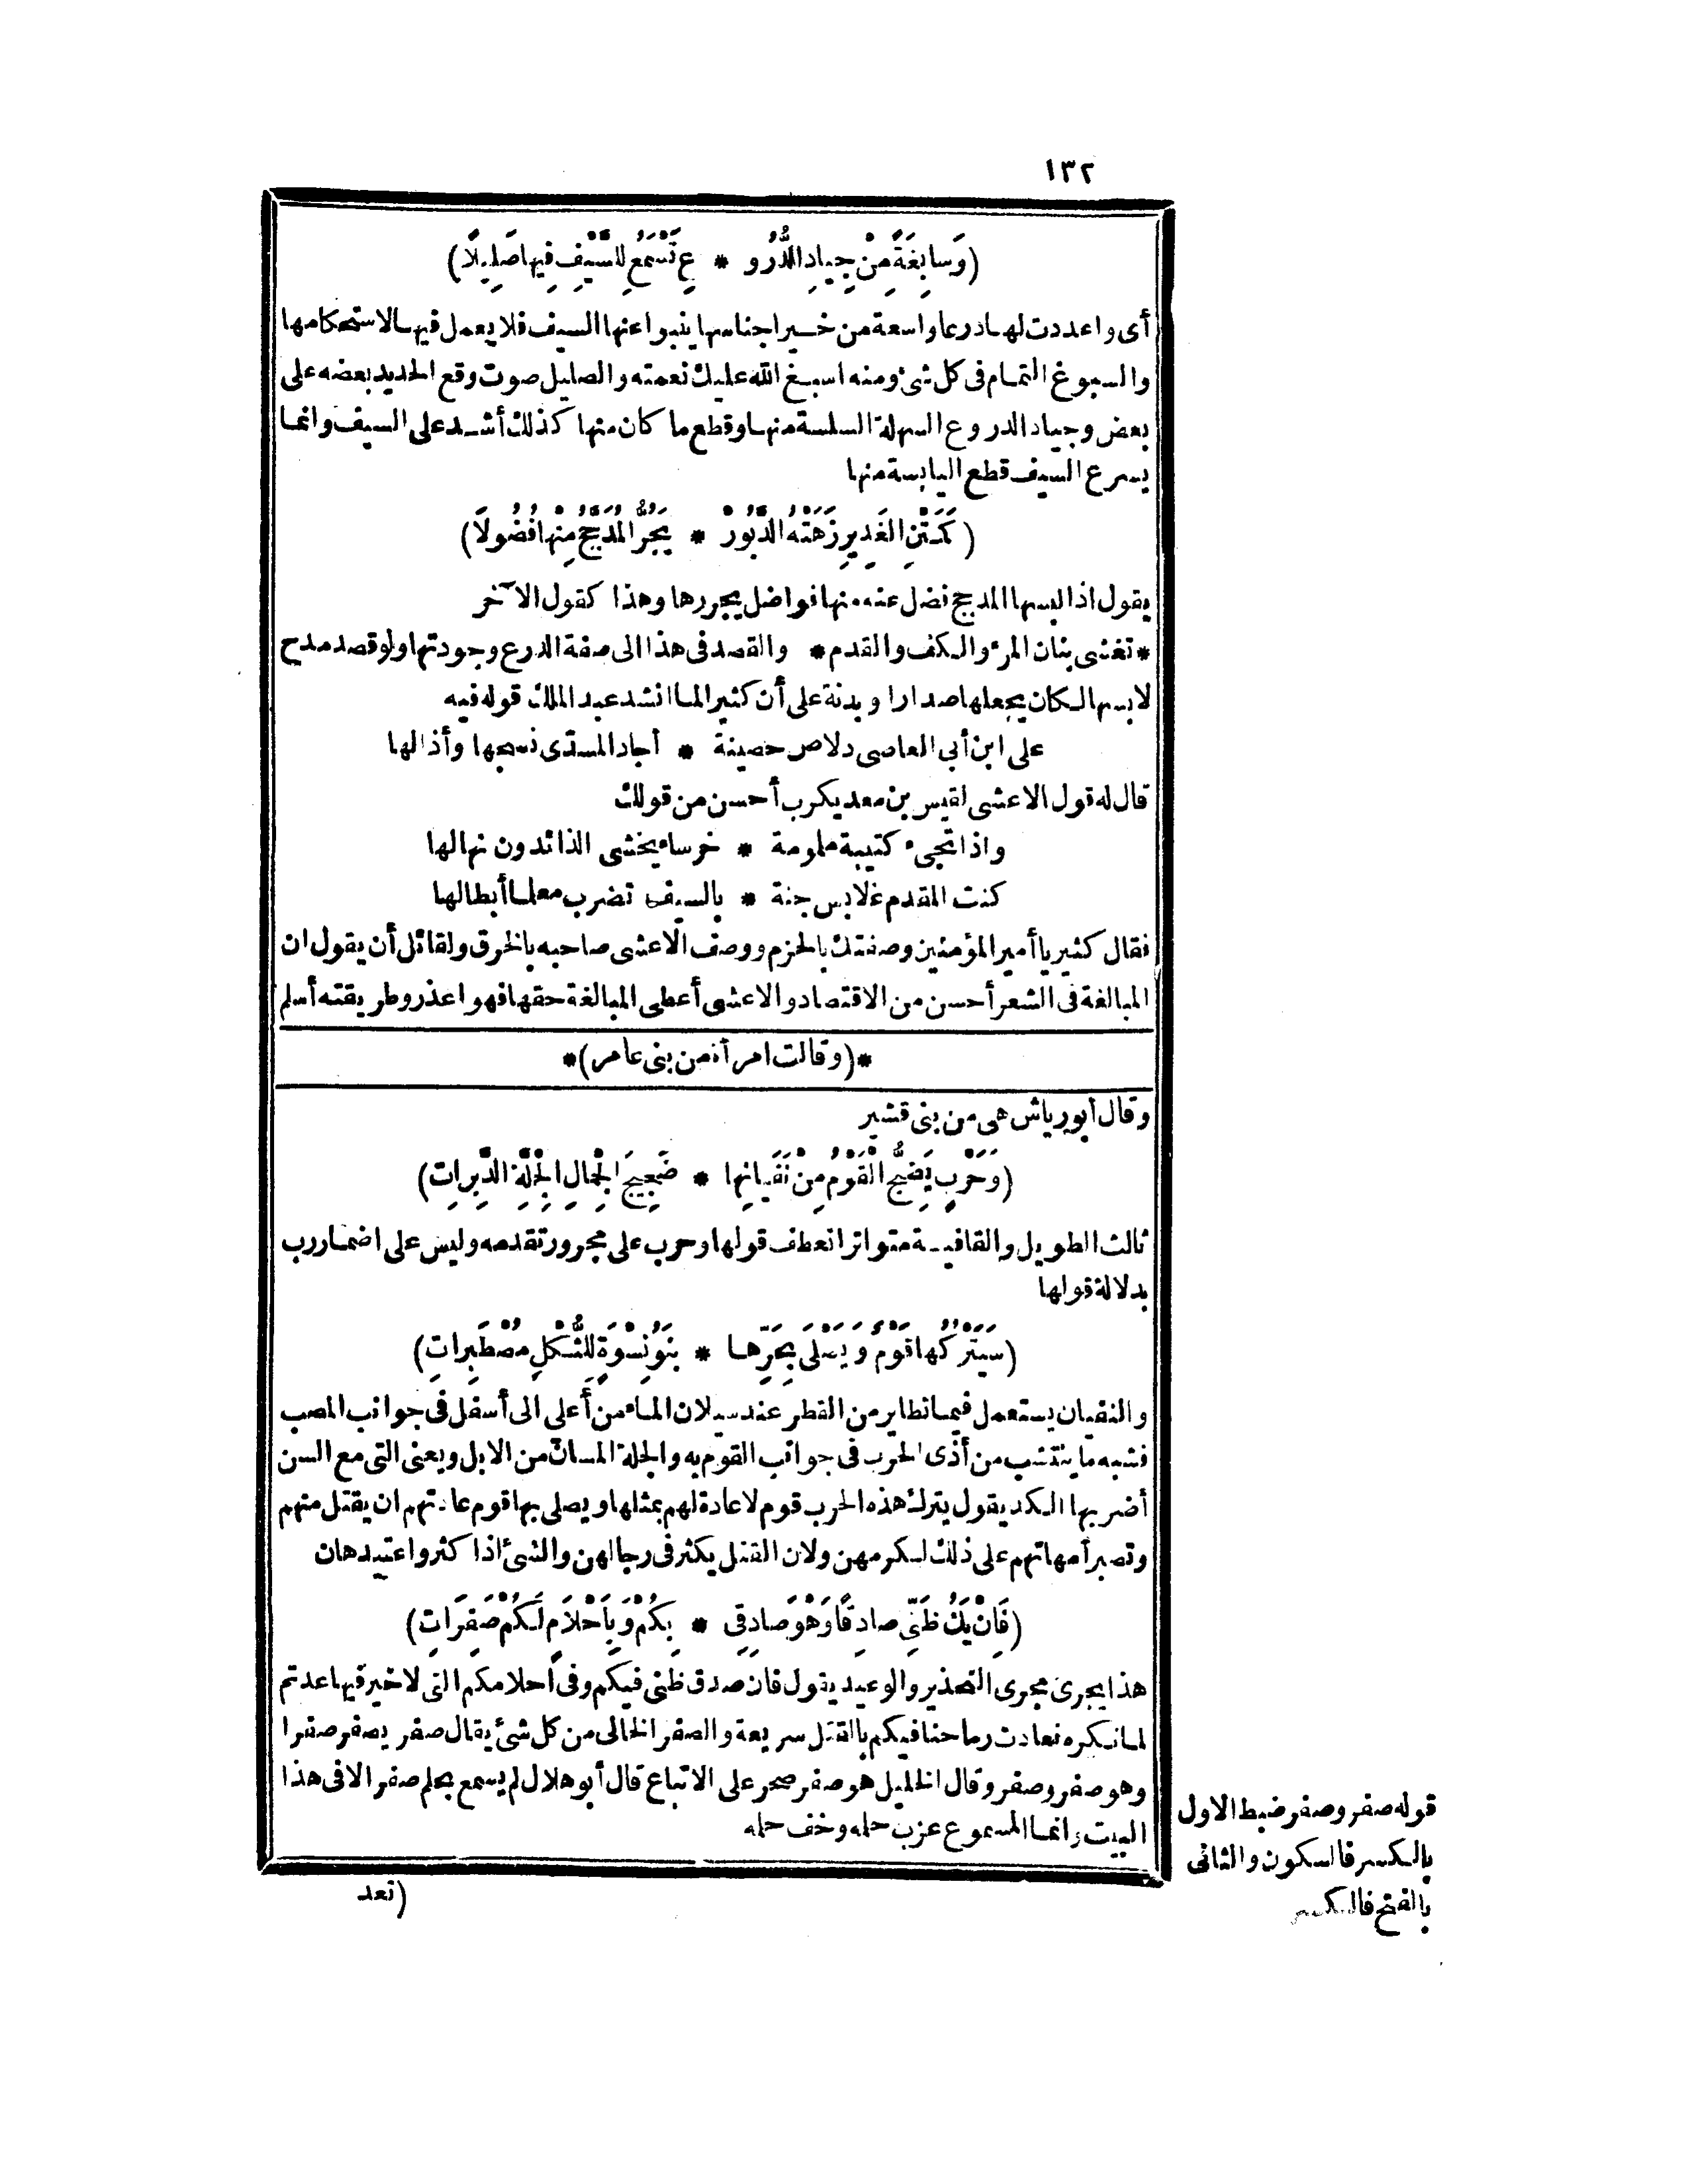 ١٣٢
(وَسابِغَةً مِنْ جِيادِ الدُّرُو * عِ تَسْمَعُ لِلسَّيْفِ فِيها صَلِيلًا)
أى واعددت لها درعا واسعة من خير اجناسها ينبوا عنها السيف فلا يعمل فيها لاستحكامها
والسبوغ التمام فى كل شئ ومنه اسبغ الله عليك نعمته والصليل صوت وقع الحديد بعضه على
بعض وجياد الدروع السهلة السلسة منها وقطع ما كان منها كذلك أشد على السيف وانما
يسرع السيف قطع اليابسة منها
(كَمَتْنِ الغَدِيرِ زَهَتْهُ الدَّبُورُ * يَجُرُّ المُدَجَّجُ مِنْها فُضُولًا)
يقول اذا لبسها المدجج فضل عنه منها فواضل يجررها وهذا كقول الآخر
* تغشى بنان المرء والكف والقدم * والقصد فى هذا الى صفة الدرع وجودتها ولو قصد مدح
لابسها لكان يجعلها صدارا وبدنة على أن كثيرا لما انشد عبد الملك قوله فيه
على ابن أبى العاصى دلاص حصينة * أجاد المسدّى نسجها وأذالها
قال له قول الاعشى لقيس بن معديكرب أحسن من قولك
واذا تجىء كتيبة ملومة * خرساء يخشى الذائدون نهالها
كنت المقدم غلابس جنة * بالسيف تضرب معلما أبطالها
فقال كثير يا أمير المؤمنين وصفتك بالحزم ووصف الاعشى صاحبه بالخرق ولقائل أن يقول ان
المبالغة فى الشعر أحسن من الاقتصاد والاعشى أعطى المبالغة حقها فهو اعذر وطريقته أسلم
*(وقالت امرأة من بنى عامر)*
وقال أبو رياش هى من بنى قشير
(وَحَرْبٍ يَضِجُّ القَوْمُ مِنْ نَفَيانِها * ضَجِيجَ الجِمالِ الجِلَّةِ الدَّبِراتِ)
ثالث الطويل والقافية متواتر انعطف قولها وحرب على مجرور تقدمه وليس على اضمار رب
بدلالة قولها
(سَيَتْرُكُها قَوْمٌ وَيَصْلَى بِحَرِّها * بَنُو نِسْوَةٍ لِلثُّكْلِ مُصْطَبِراتِ)
والنفيان يستعمل فيما تطاير من القطر عند سيلان الماء من أعلى الى أسفل فى جوانب المصب
فشبه ما يتشب من أذى الحرب فى جوانب القوم به والجلة المسانّ من الابل ويعنى التى مع السن
أضر بها الكد يقول يترك هذه الحرب قوم لا عادة لهم بمثلها ويصلى بها قوم عادتهم ان يقتل منهم
وتصبر أمهاتهم على ذلك لكرمهن ولان القتل يكثر فى رجالهن والشئ اذا كثر واعتيد هان
(فَانْ يَكُ ظَنِّى صادِقًا وَهْوَ صَادِقِى * بِكُمْ وَبِأَحْلَامٍ لَكُمْ صَفِرَاتِ)
هذا يجرى مجرى التحذير والوعيد يقول فان صدق ظنى فيكم وفى أحلامكم التى لا خير فيها عدتم
لما نكره فعادت رماحنا فيكم بالقتل سريعة والصفر الخالى من كل شئ يقال صفر يصفر صفرا
وهو صفر وصفر وقال الخليل هو صفر صحر على الاتباع قال أبو هلال لم يسمع بحلم صفر الا فى هذا
البيت وانما المسموع عزب حلمه وخف حلمه
(تعد
قوله صفر وصفر ضبط الاول
بالكسر فالسكون والثانى
بالفتح فالكسر